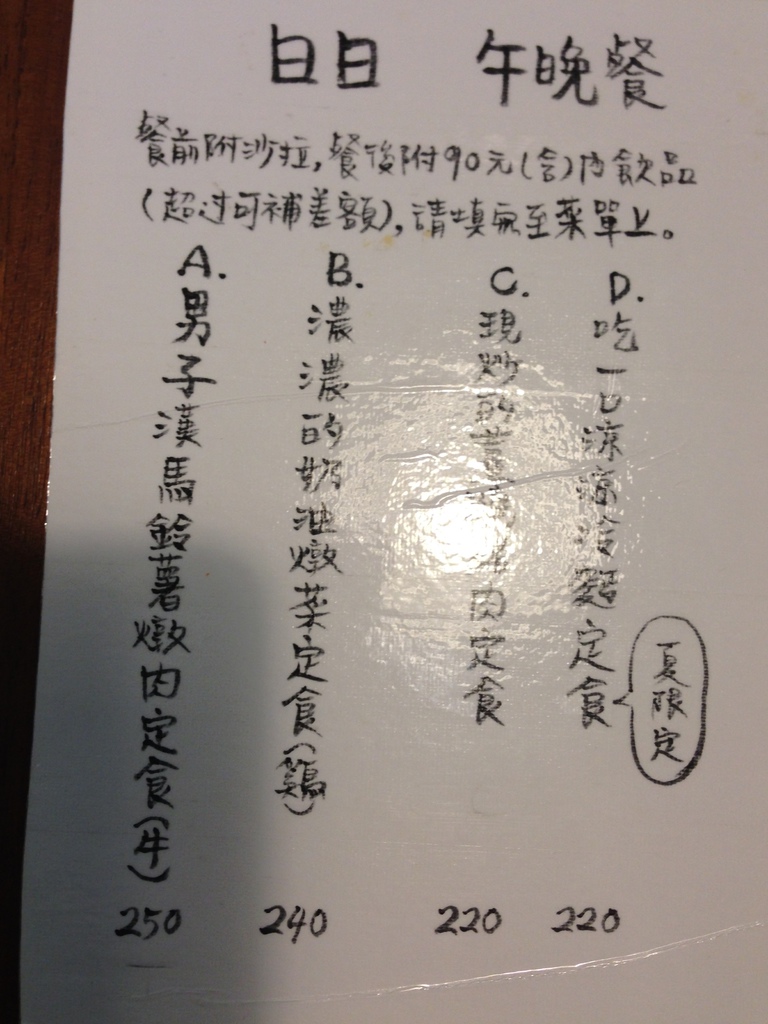 日日 午晚餐
餐前附沙拉,餐後附90元(含)內飲品
(超过可補差額),請填寫至菜單上。
A. 男子漢馬鈴薯燉肉定食(牛) 250
B. 濃濃的奶油燉菜定食(鷄) 240
C. 現炒的薑燒肉定食 220
D. 吃一口涼涼冷麵定食 220
夏限定